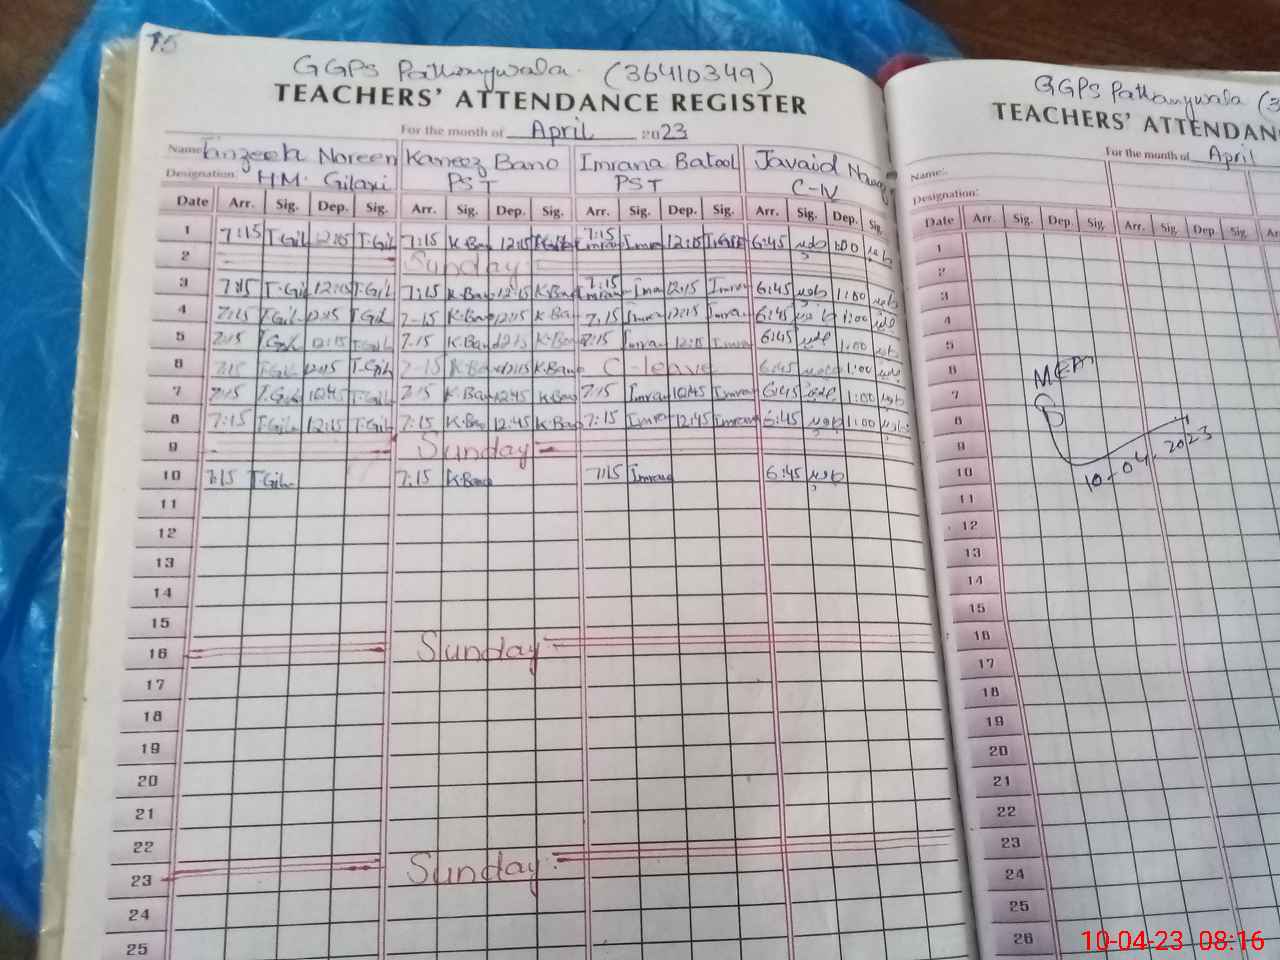 15
GGPS Pathanywala. (36410349)
TEACHERS' ATTENDANCE REGISTER
For the month of April 2023
Name Tanzeela Noreen Kaneez Bano Imrana Batool Javaid
Designation: H.M. Gilani PST PST C-IV
Date Arr. Sig. Dep. Sig. Arr. Sig. Dep. Sig. Arr. Sig. Dep. Sig. Arr. Sig. Dep. Sig.
1 7:15 T.Gil 12:15 T.Gil 7:15 K.Bano 12:15 7:15 Imran 12:15 6:45 1:00
2 Sunday
3 7:15 T.Gil 12:15 T.Gil 7:15 K.Bano 12:15 K.Bano 7:15 Imran 12:15 Imran 6:45 1:00
4 7:15 T.Gil 12:15 T.Gil 7:15 K.Bano 12:15 K.Bano 7:15 Imran 12:15 Imran 6:45 1:00
5 7:15 T.Gil 12:15 T.Gil 7:15 K.Bano 12:15 K.Bano 7:15 Imran 12:15 Imran 6:45 1:00
6 7:15 T.Gil 12:15 T.Gil 7:15 K.Bano 12:15 K.Bano C-leave 6:45 1:00
7 7:15 T.Gil 10:45 T.Gil 7:15 K.Bano 12:45 K.Bano 7:15 Imran 10:45 Imran 6:45 1:00
8 7:15 T.Gil 12:15 T.Gil 7:15 K.Bano 12:45 K.Bano 7:15 Imran 12:45 Imran 6:45 1:00
9 Sunday
10 7:15 T.Gil 7:15 K.Bano 7:15 Imran 6:45
11
12
13
14
15
16 Sunday
17
18
19
20
21
22
23 Sunday
24
25
GGPS Pathanywala (3
TEACHERS' ATTENDAN
For the month of April
Name:
Designation:
Date Arr. Sig. Dep. Sig. Arr. Sig. Dep. Sig. Ar
1
2
3
4
5
6
7
8
9
10
11
12
13
14
15
16
17
18
19
20
21
22
23
24
25
26
10-04-2023
10-04-23 08:16